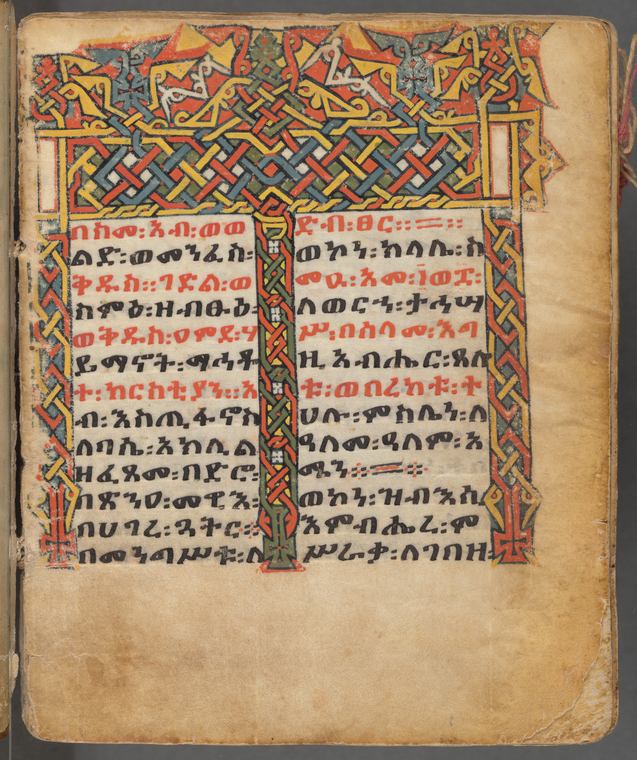 በስመ፡አብ፡ወወ
ልድ፡ወመንፈስ፡
ቅዱስ፡፡ገድል፡ወ
ስምዕ፡ዘብፁዕ፡
ወቅዱስ፡ዐምደ፡ሃ
ይማኖት፡ማኅቶ
ተ፡ክርስቲያን፡፡አ
ብ፡እስጢፋኖስ
ለባሴ፡አክሊል
ዘፈጸመ፡በድሮ፡
በጽንዐ፡መዊእ፡
በሀገረ፡ዓትር፡
በመንግሥቱ፡ለ
ድብ፡ፀር፡፡
ወኮነ፡ክላሌ፡ስ
መዪ፡አመ፡፲ወ፪፡
ለወርኅ፡ታኅሣ
ሥ፡በሰላመ፡እግ
ዚአብሔር፡ጸሎ
ቱ፡ወበረከቱ፡ት
ሀሉ፡ምስሌነ፡ለ
ዓለመ፡ዓለም፡አ
ሜን፡
ወኮነ፡ዝብእስ
እምብሔረ፡ም
ሥራቃ፡ለገበዘ፡